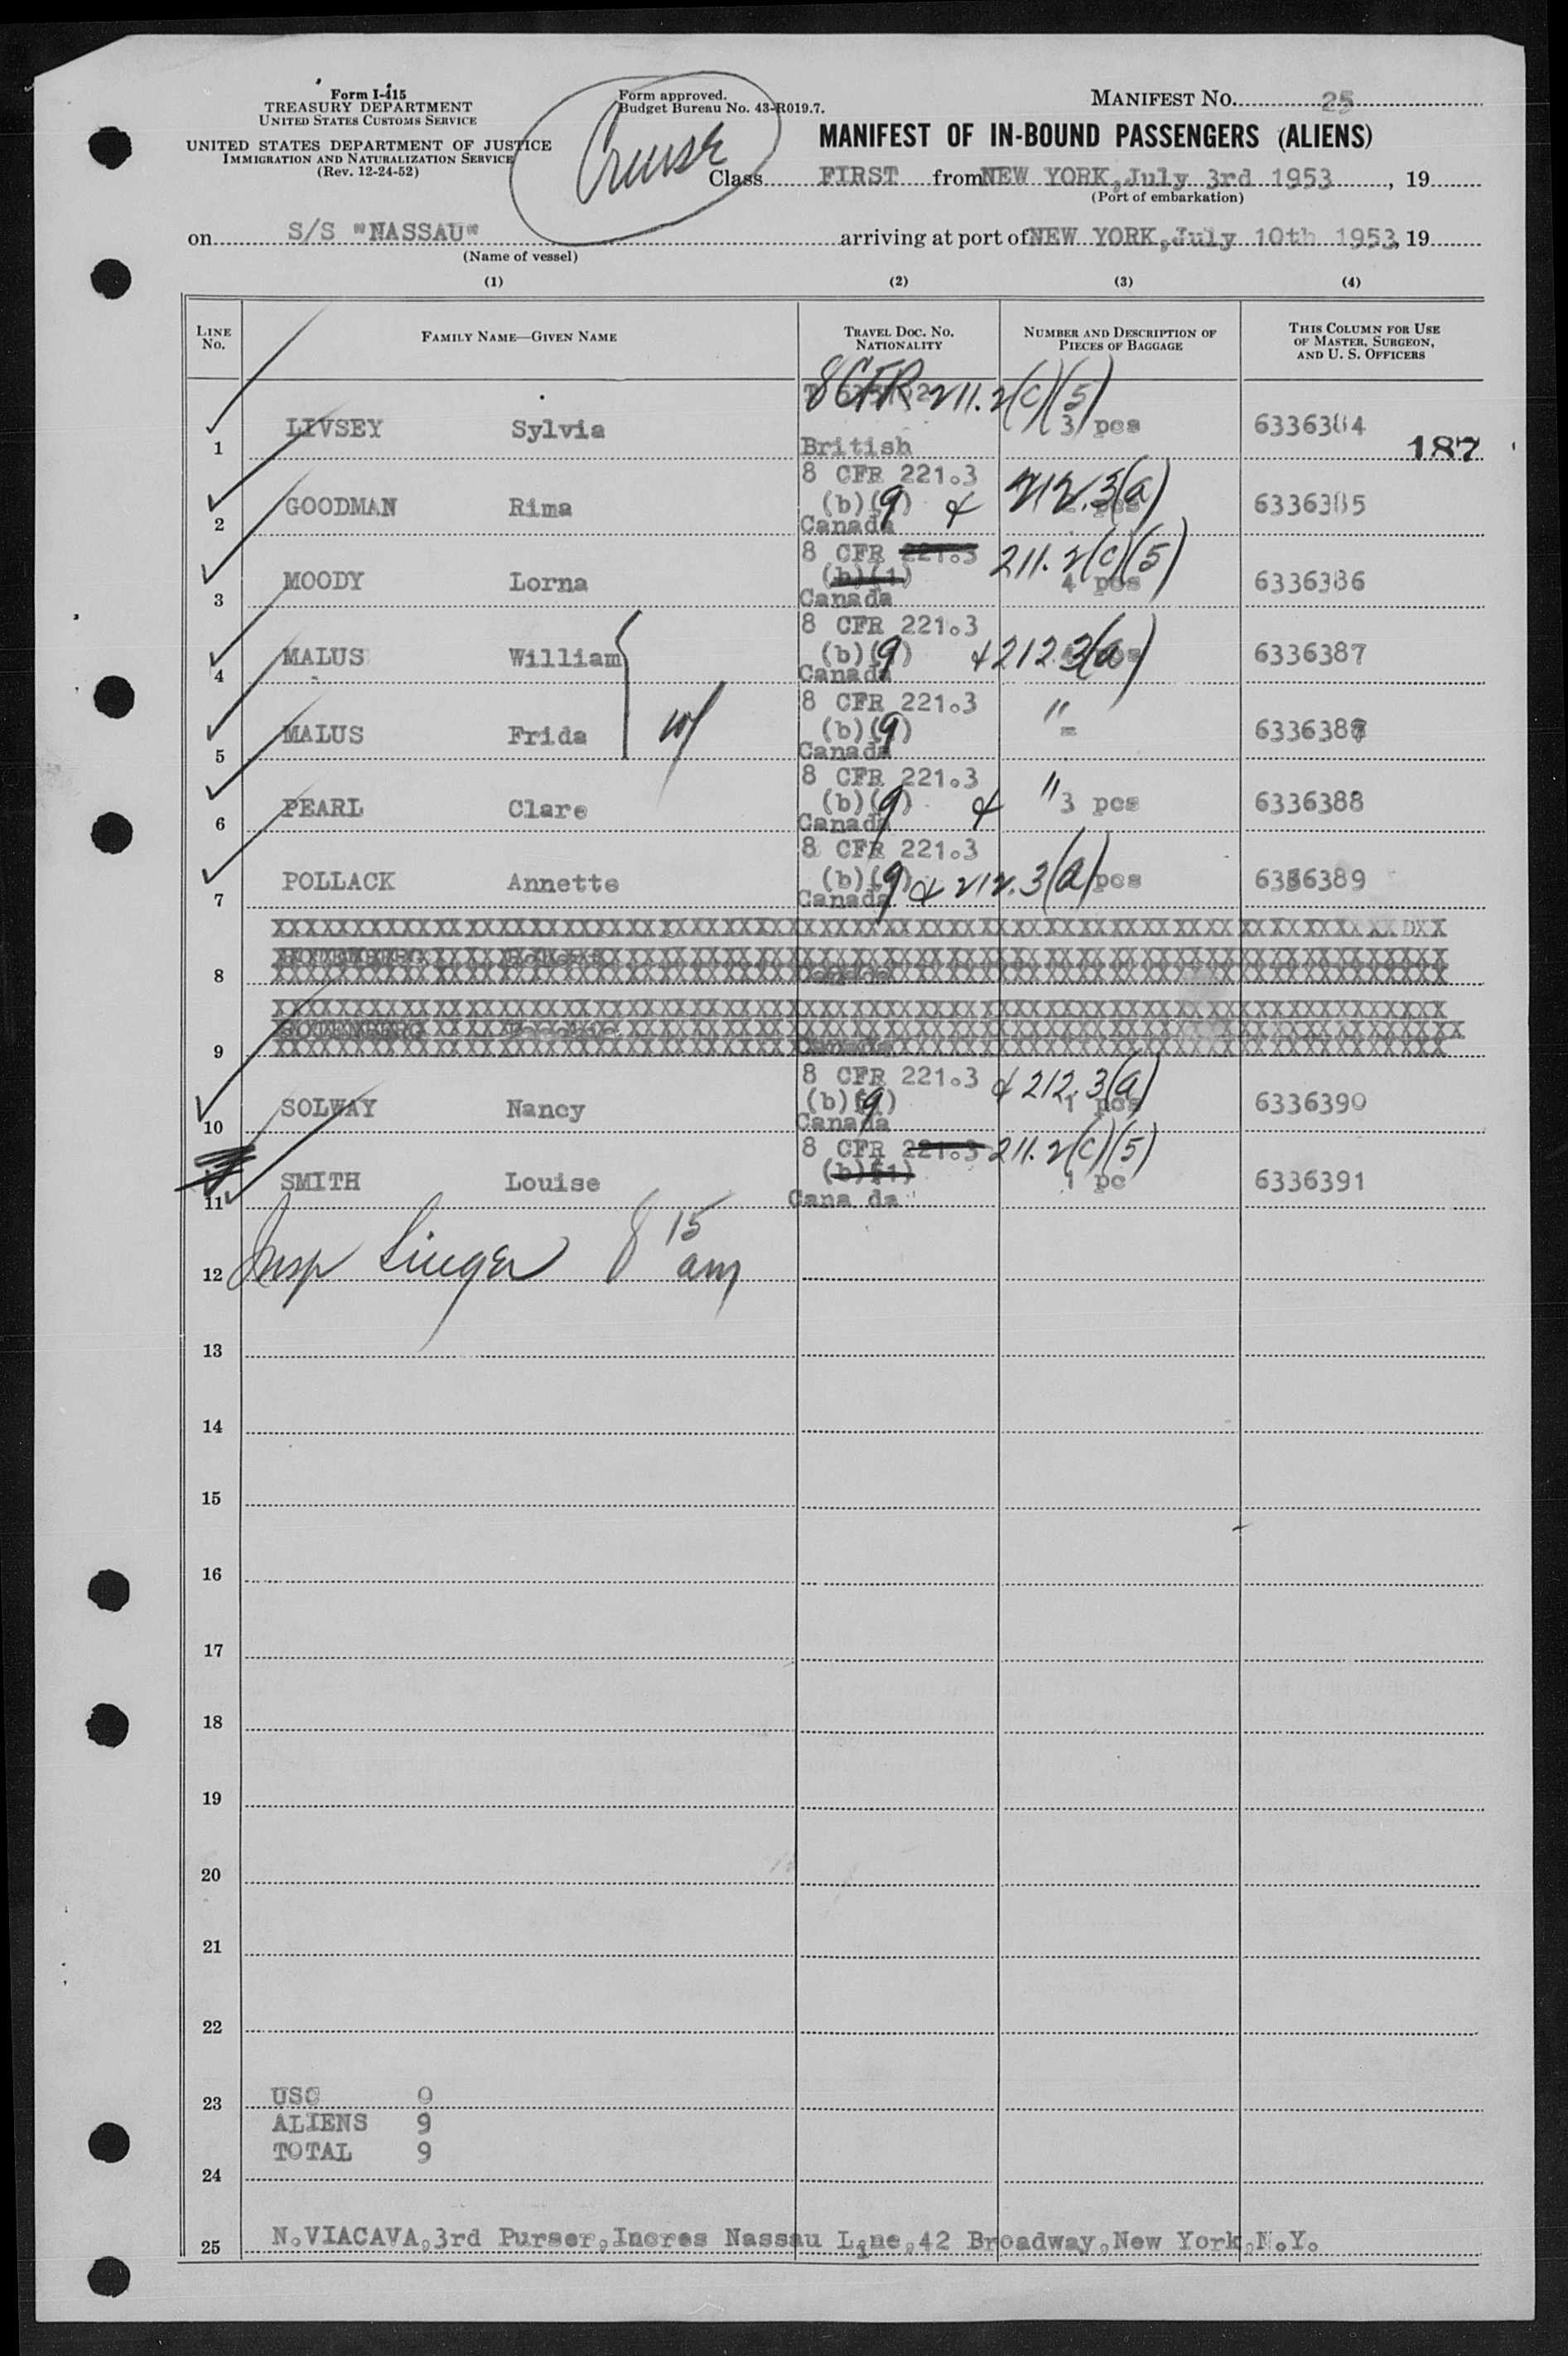 Form I-415
TREASURY DEPARTMENT
UNITED STATES CUSTOMS SERVICE
UNITED STATES DEPARTMENT OF JUSTICE
IMMIGRATION AND NATURALIZATION SERVICE
(Rev. 12-24-52)
Form approved.
Budget Bureau No. 43-R019.7.
Cruise
MANIFEST NO. 25
MANIFEST OF IN-BOUND PASSENGERS (ALIENS)
Class FIRST from NEW YORK, July 3rd 1953, 19
(Port of embarkation)
on S/S "NASSAU" arriving at port of NEW YORK, July 10th 1953, 19
(Name of vessel)
(1) (2) (3) (4)
LINE No. FAMILY NAME—GIVEN NAME TRAVEL DOC. NO. NATIONALITY NUMBER AND DESCRIPTION OF PIECES OF BAGGAGE THIS COLUMN FOR USE OF MASTER, SURGEON, AND U. S. OFFICERS
8 CFR 211.2(c)(5)
1 LIVSEY Sylvia British 3 pcs 6336384 187
8 CFR 221.3 212.3(a)
2 GOODMAN Rima (b)(9) & pcs 6336385
Canada
8 CFR 221.3 211.2(c)(5)
3 MOODY Lorna (b)(1) 4 pcs 6336386
Canada
8 CFR 221.3
4 MALUS William (b)(9) & 212.3(a) 6336387
Canada
8 CFR 221.3 "
5 MALUS Frida w/ (b)(9) = 6336387
Canada
8 CFR 221.3 "
6 PEARL Clare (b)(9) & 3 pcs 6336388
Canada
8 CFR 221.3
7 POLLACK Annette (b)(9) & 212.3(a) pcs 6336389
Canada
8 ROTEMBERG Canada
9 ROTEMBERG Canada
8 CFR 221.3 & 212.3(a)
10 SOLWAY Nancy (b)(9) 1 pcs 6336390
Canada
8 CFR 221.3 211.2(c)(5)
11 SMITH Louise (b)(1) 1 pc 6336391
Cana da
12 Insp Singer 8 15 am
13
14
15
16
17
18
19
20
21
22
23 USC 0
ALIENS 9
TOTAL 9
24
25 N.VIACAVA,3rd Purser,Incres Nassau Line,42 Broadway,New York,N.Y.